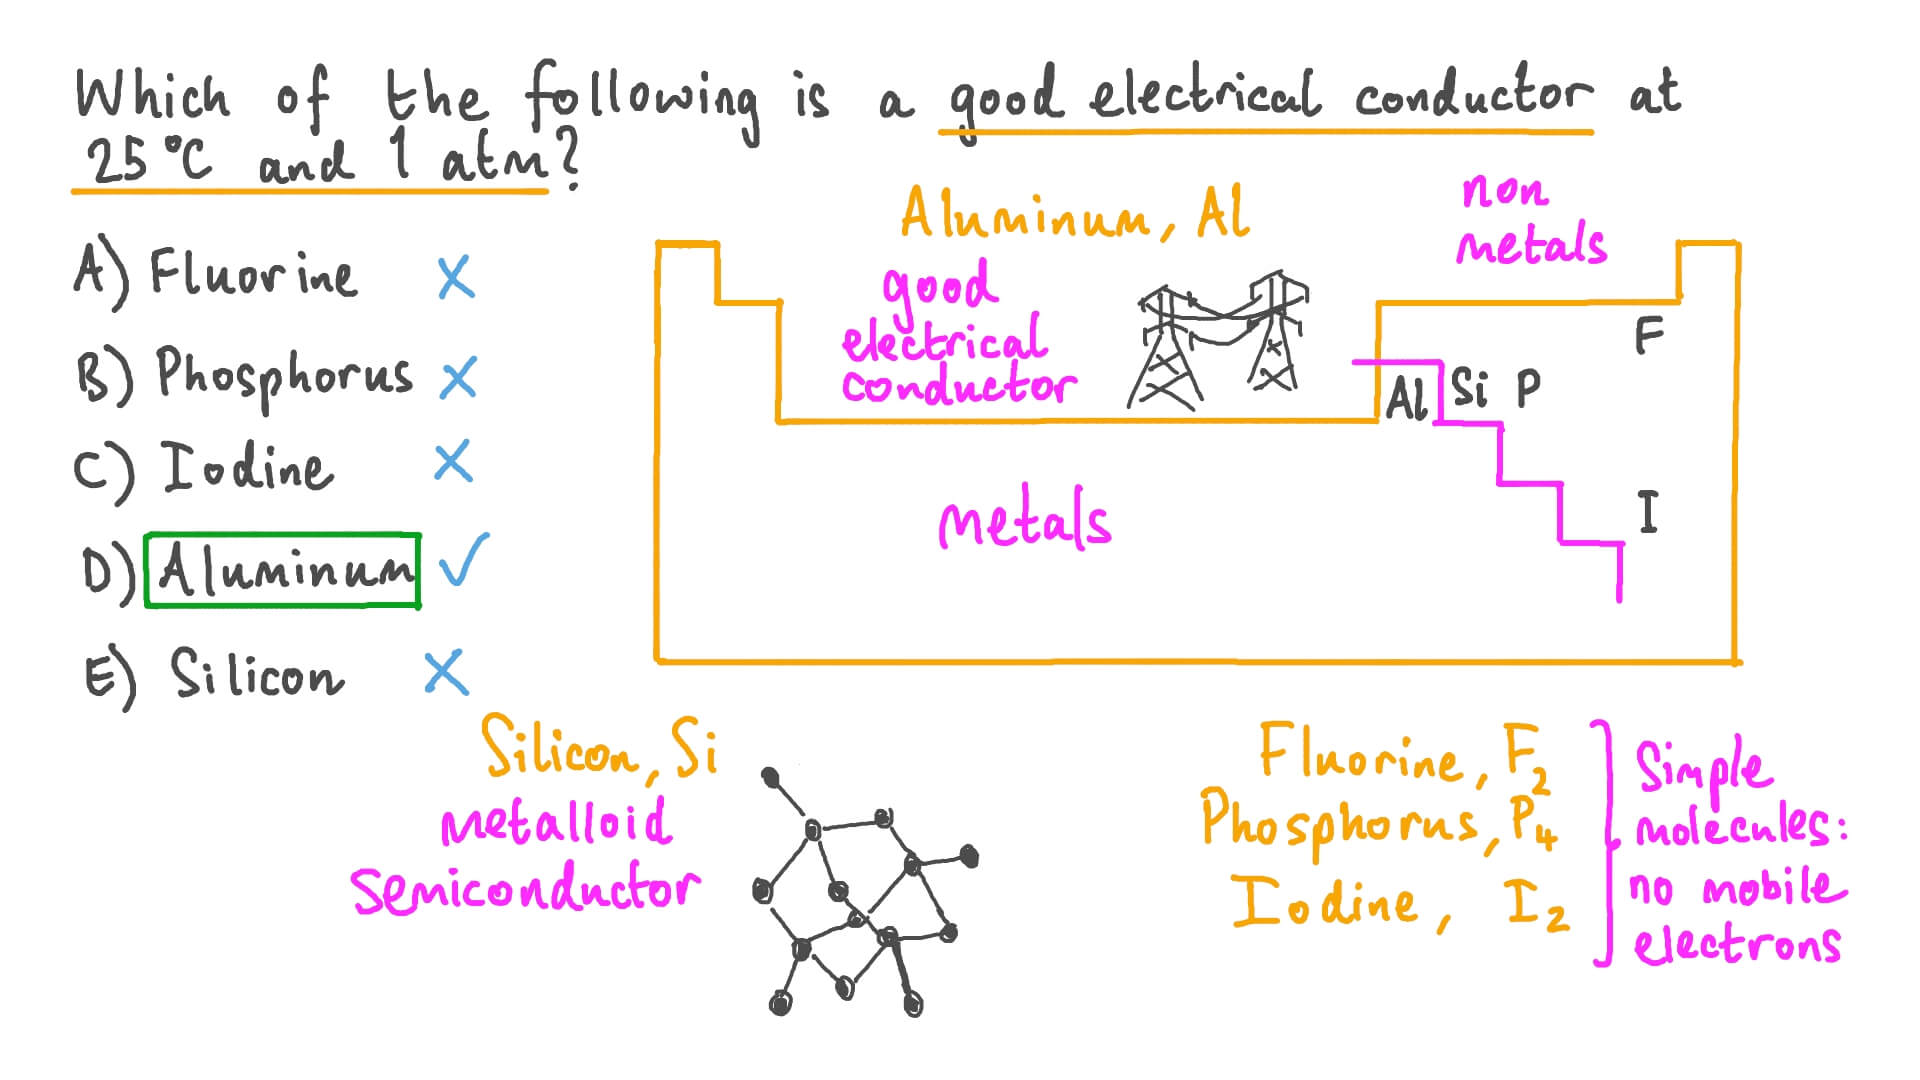 Which of the following is a good electrical conductor at
25°C and 1 atm?
A) Fluorine
B) Phosphorus
C) Iodine
D) Aluminum
E) Silicon
Aluminum, Al
good
electrical
conductor
non
metals
F
Al Si P
I
metals
Silicon, Si
metalloid
Semiconductor
Fluorine, F₂
Phosphorus, P₄
Iodine, I₂
Simple
molecules:
no mobile
electrons